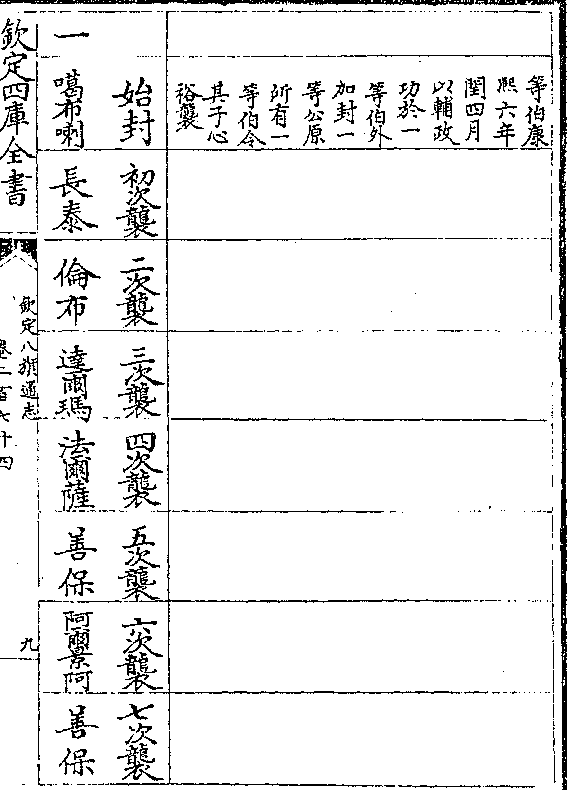 等伯康
熙六年
閏四月
以輔政
功於一
等伯外
加封一
等公原
所有一
等伯令
其子心
裕襲
始封
初次襲
二次襲
三次襲
四次襲
五次襲
六次襲
七次襲
一
噶布喇
長泰
倫布
達爾瑪
法爾薩
善保
阿爾景阿
善保
欽定四庫全書
欽定八旗通志
卷二百七十四
九